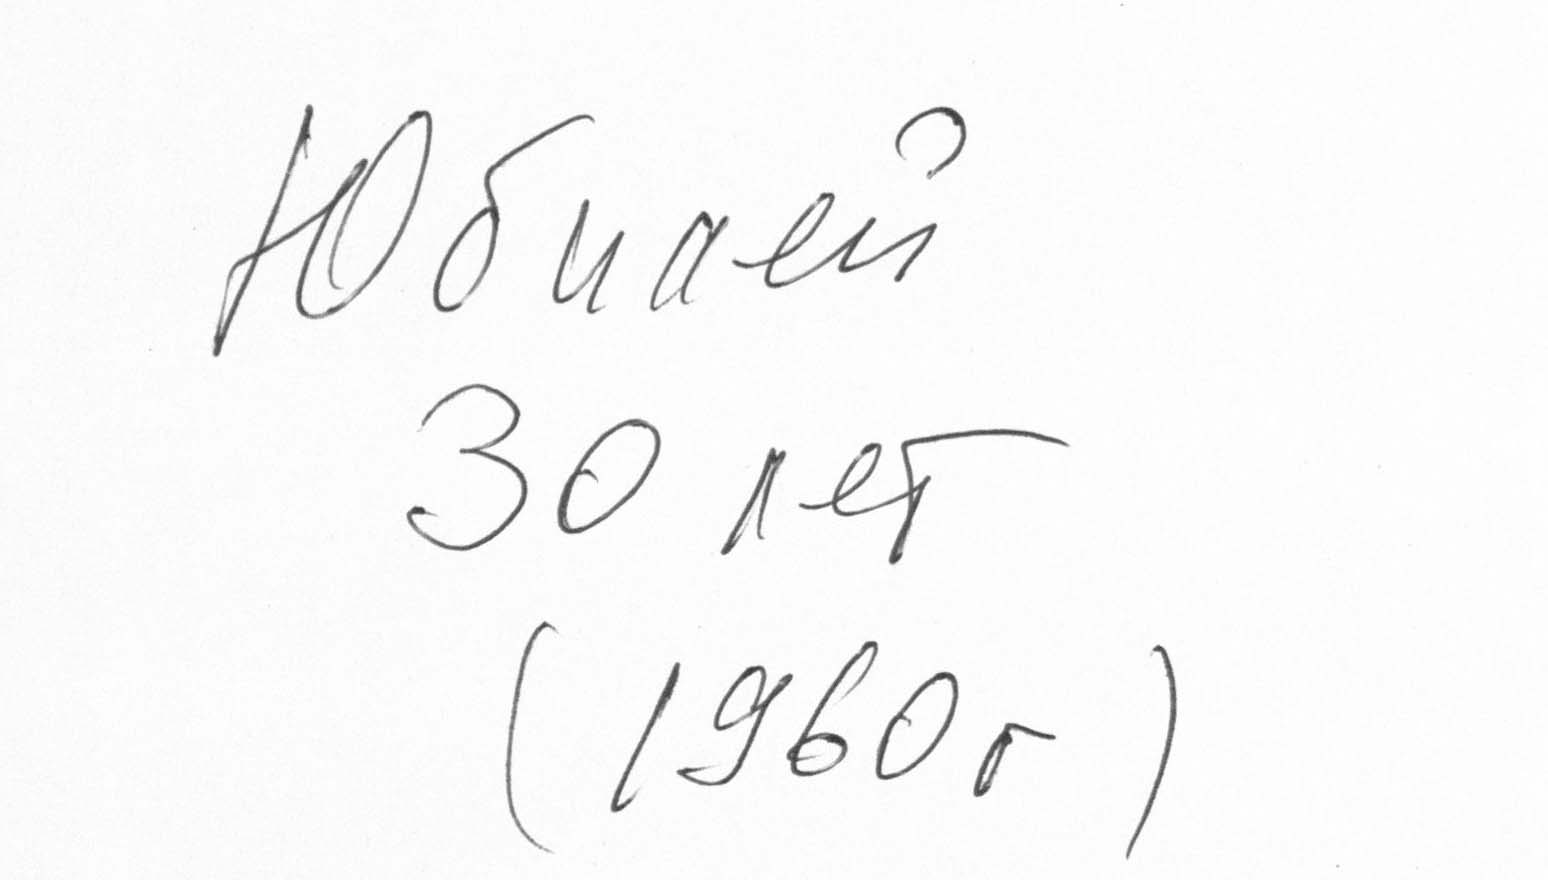 Юбилей
30 лет
(1960г)